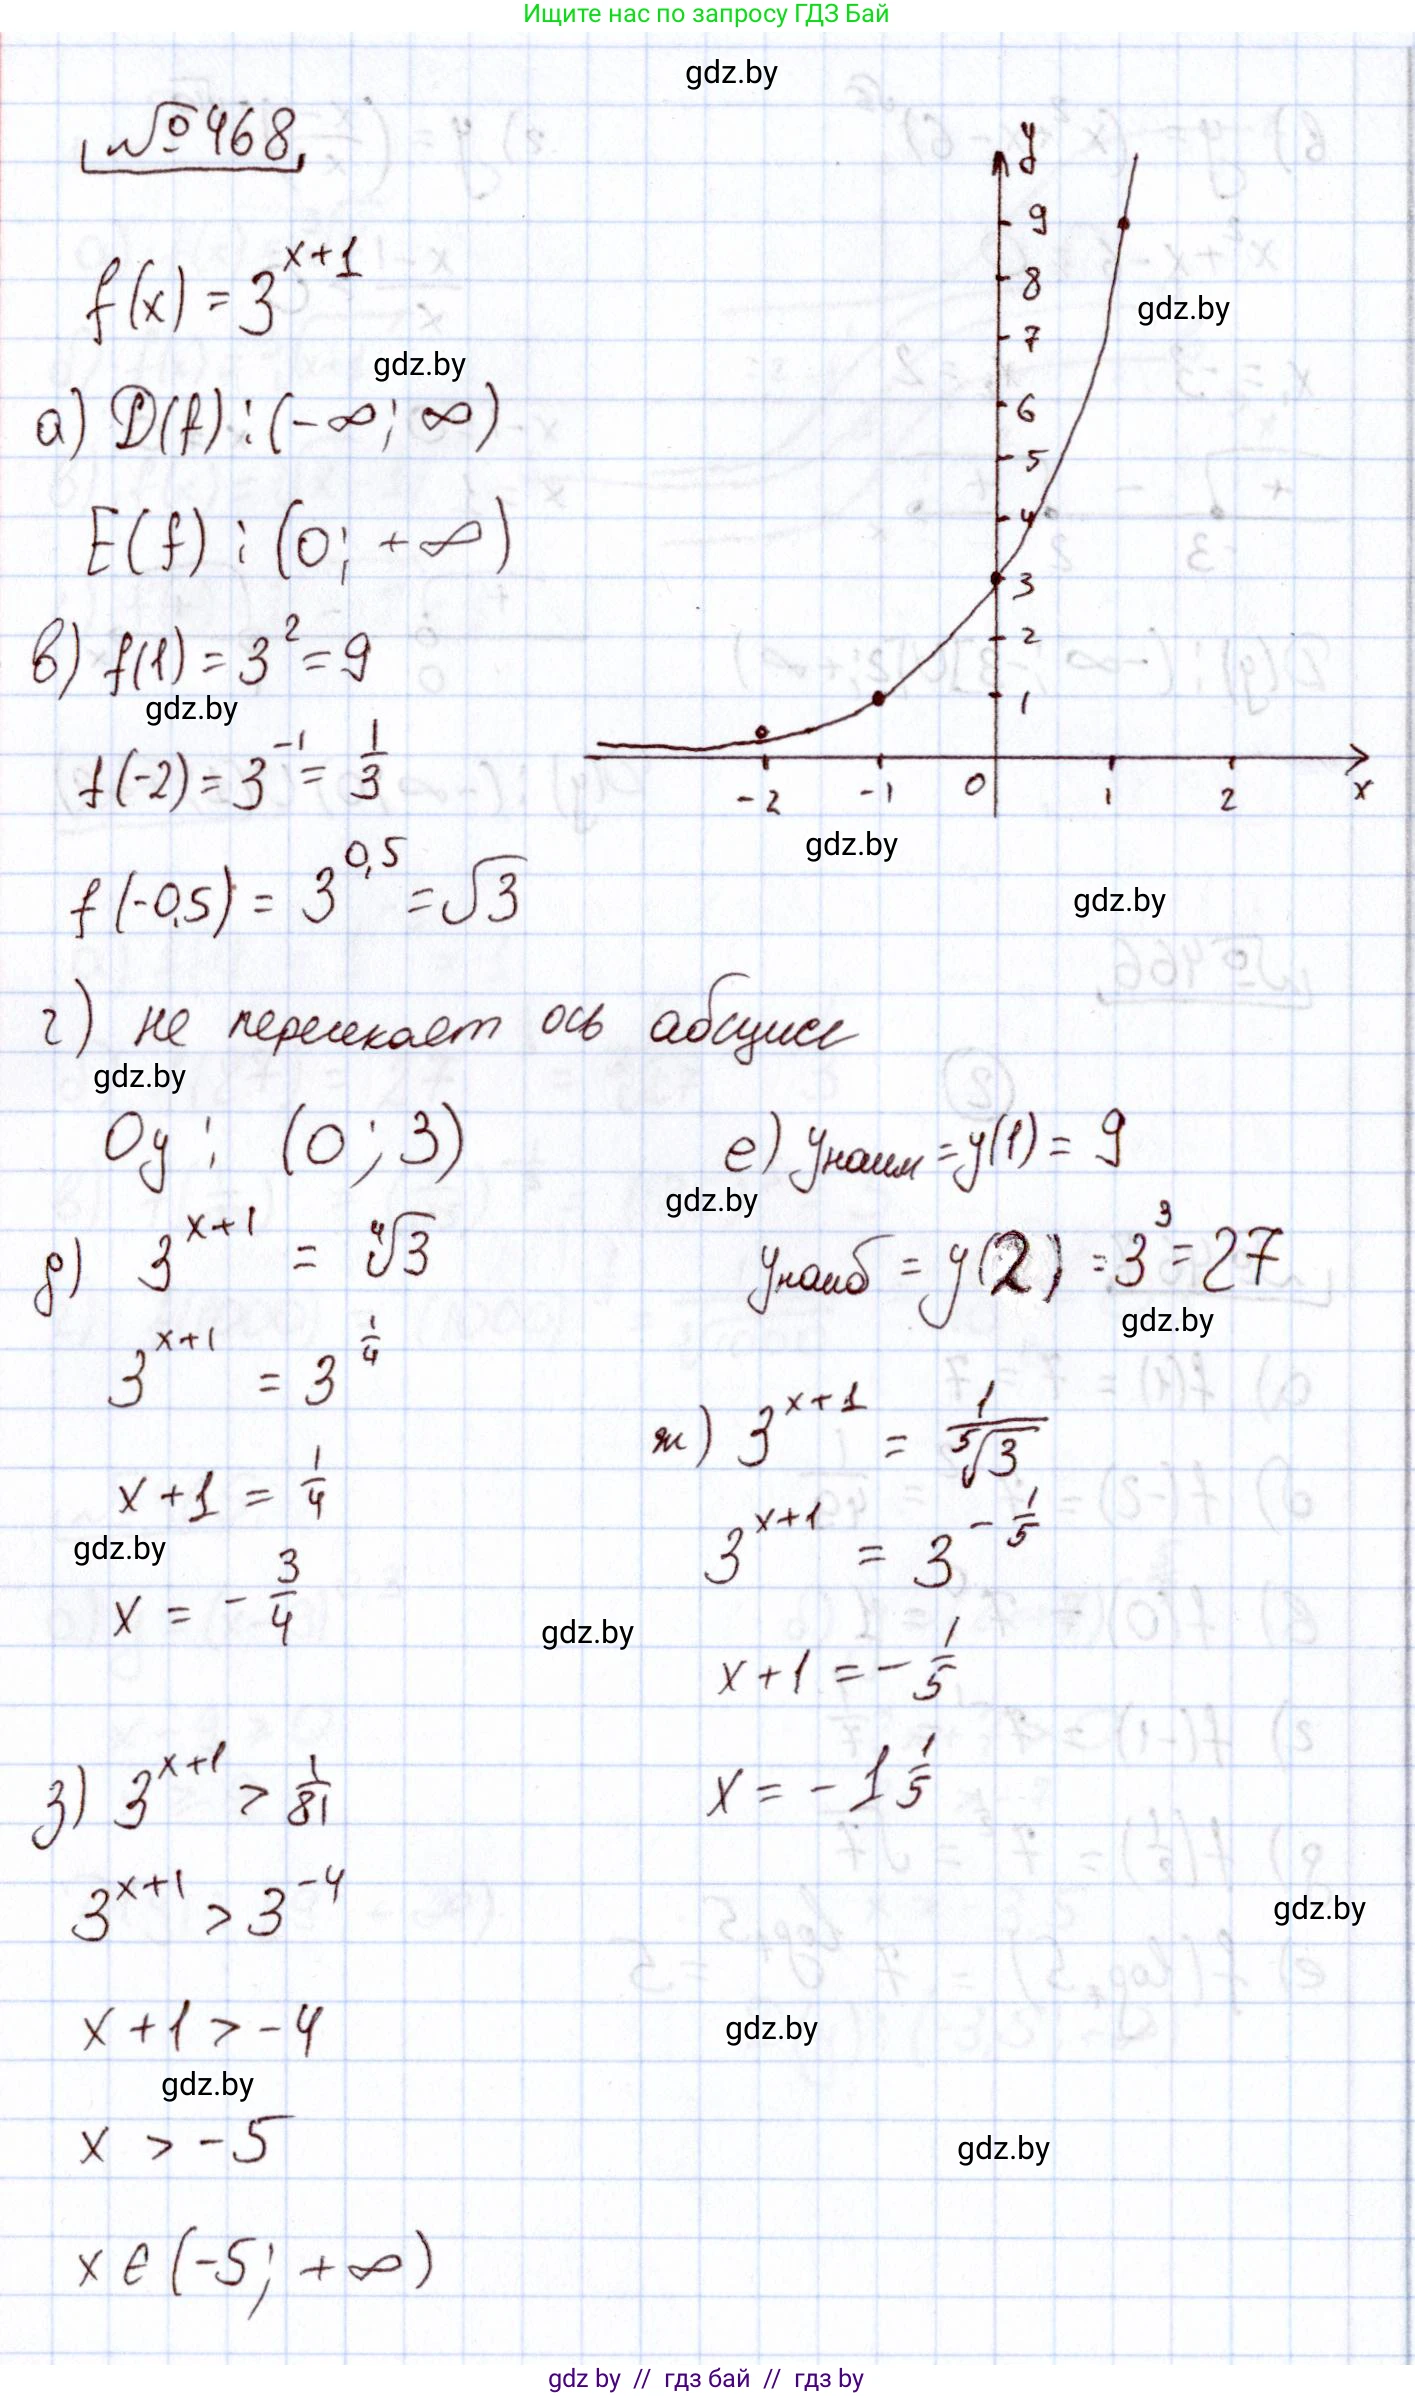 Ищите нас по запросу ГДЗ Бай
gdz.by
№468
f(x) = 3^{x+1}
gdz.by
gdz.by
а) D(f) : (-∞; ∞)
E(f) : (0; +∞)
в) f(1) = 3^2 = 9
gdz.by
f(-2) = 3^{-1} = \frac{1}{3}
f(-0,5) = 3^{0,5} = √3
y
9
8
7
6
5
4
3
2
1
-2 -1 0 1 2 x
gdz.by
gdz.by
г) не пересекает ось абсцисс
gdz.by
Oy : (0; 3)
д) 3^{x+1} = \sqrt[4]{3}
3^{x+1} = 3^{\frac{1}{4}}
x+1 = \frac{1}{4}
gdz.by
x = -\frac{3}{4}
е) yнаим = y(1) = 9
gdz.by
yнаиб = y(2) = 3^3 = 27
gdz.by
ж) 3^{x+1} = \frac{1}{\sqrt[5]{3}}
3^{x+1} = 3^{-\frac{1}{5}}
gdz.by
x+1 = -\frac{1}{5}
x = -1\frac{1}{5}
з) 3^{x+1} > \frac{1}{81}
3^{x+1} > 3^{-4}
gdz.by
x+1 > -4
gdz.by
gdz.by
x > -5
gdz.by
x ∈ (-5; +∞)
gdz by // гдз бай // гдз by